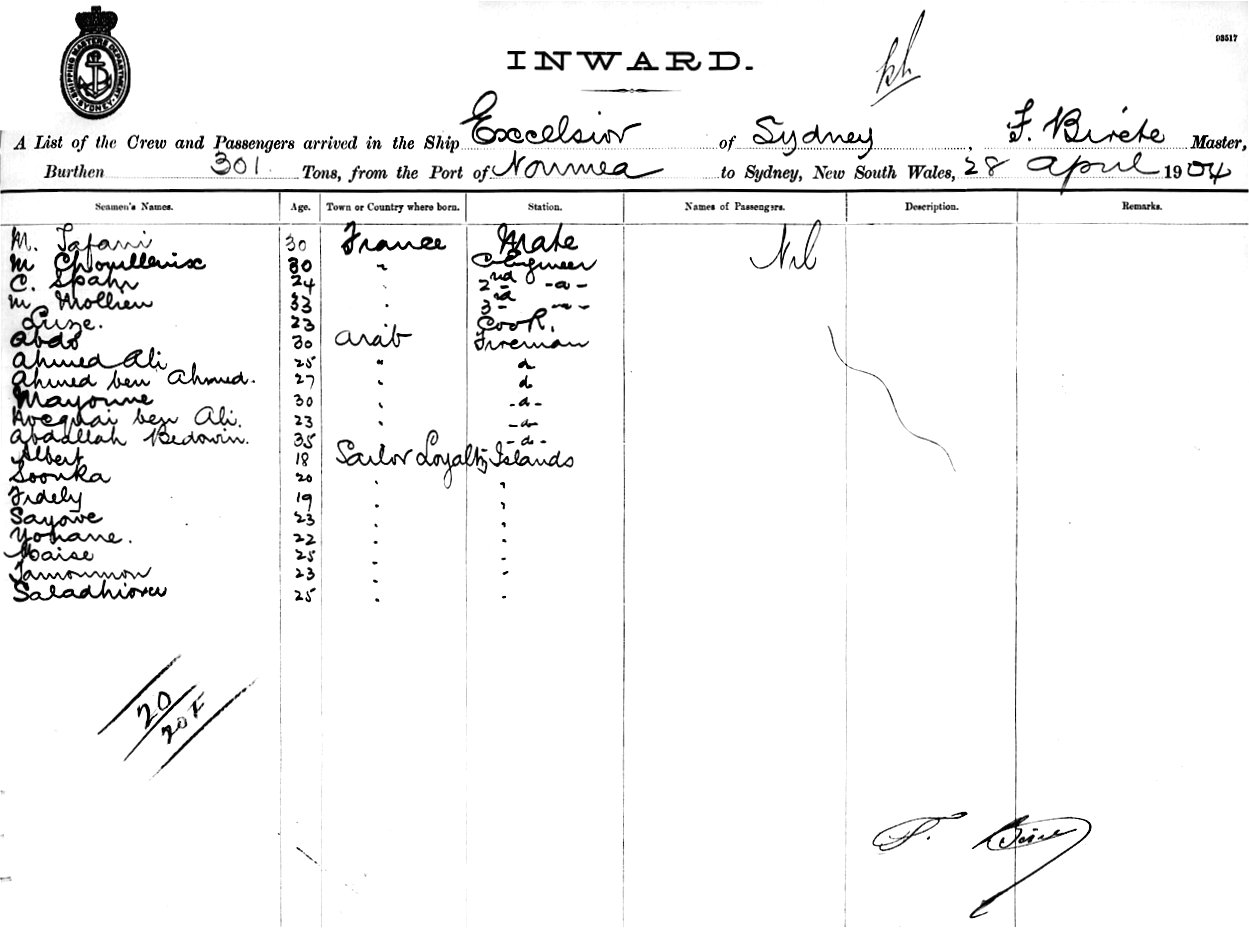 SHIPPING MASTERS DEPARTMENT SYDNEY
93517
INWARD.
A List of the Crew and Passengers arrived in the Ship Excelsior of Sydney, F. Birete Master,
Burthen 301 Tons, from the Port of Noumea to Sydney, New South Wales, 28 April 1904
Seamen's Names. Age. Town or Country where born. Station. Names of Passengers. Description. Remarks.
M. Tafani 30 France Mate Nil
M 30 " C Engineer
C. Spahn 24 " 2nd -a-
M Mollien 33 3rd -"-
Luze. 23 Cook.
Abdo 30 Arab Fireman
Ahmed Ali 25 " d
Ahmed ben Ahmed. 27 " d
Mayonne 30 " -d-
ben Ali. 23 " -d-
Abdallah Bedowin. 35 " -d-
Albert 18 Sailor Loyalty Islands
Soonka 20 " "
Fidely 19 " "
Sayowe 23 " "
Yohane. 22 " "
Waise 25 " "
Tamoumon 23 " "
25 " "
20
20 F
F.